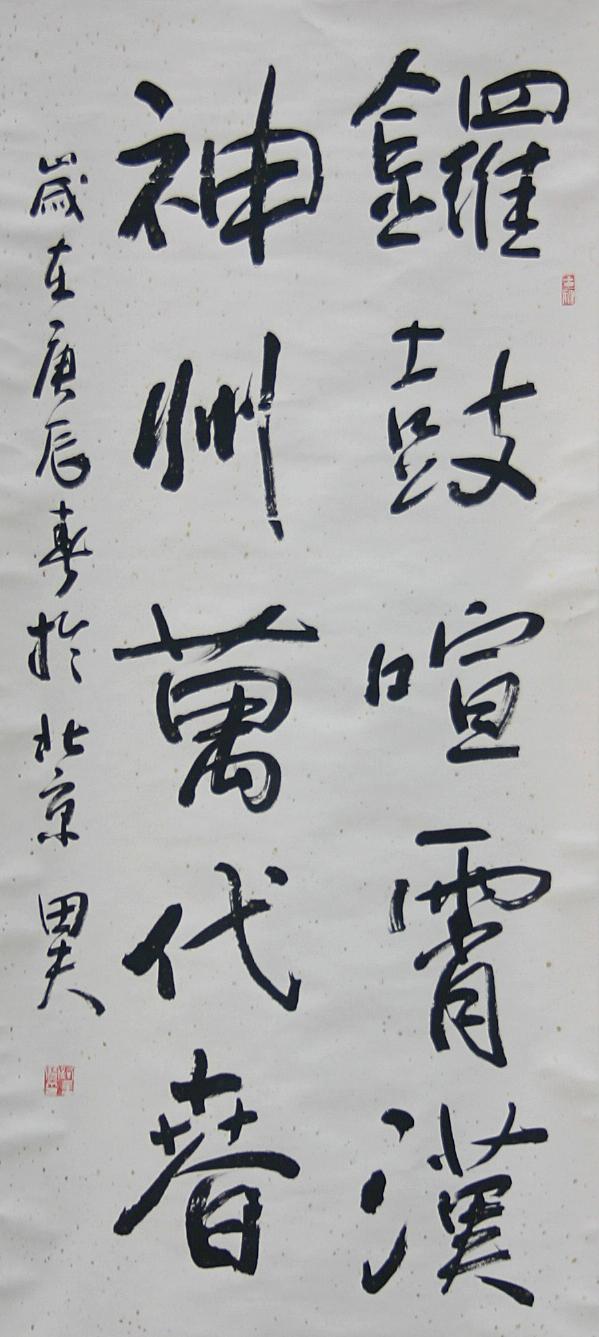 鑼鼓喧霄漢
神州萬代春
歲在庚辰春於北京 田夫